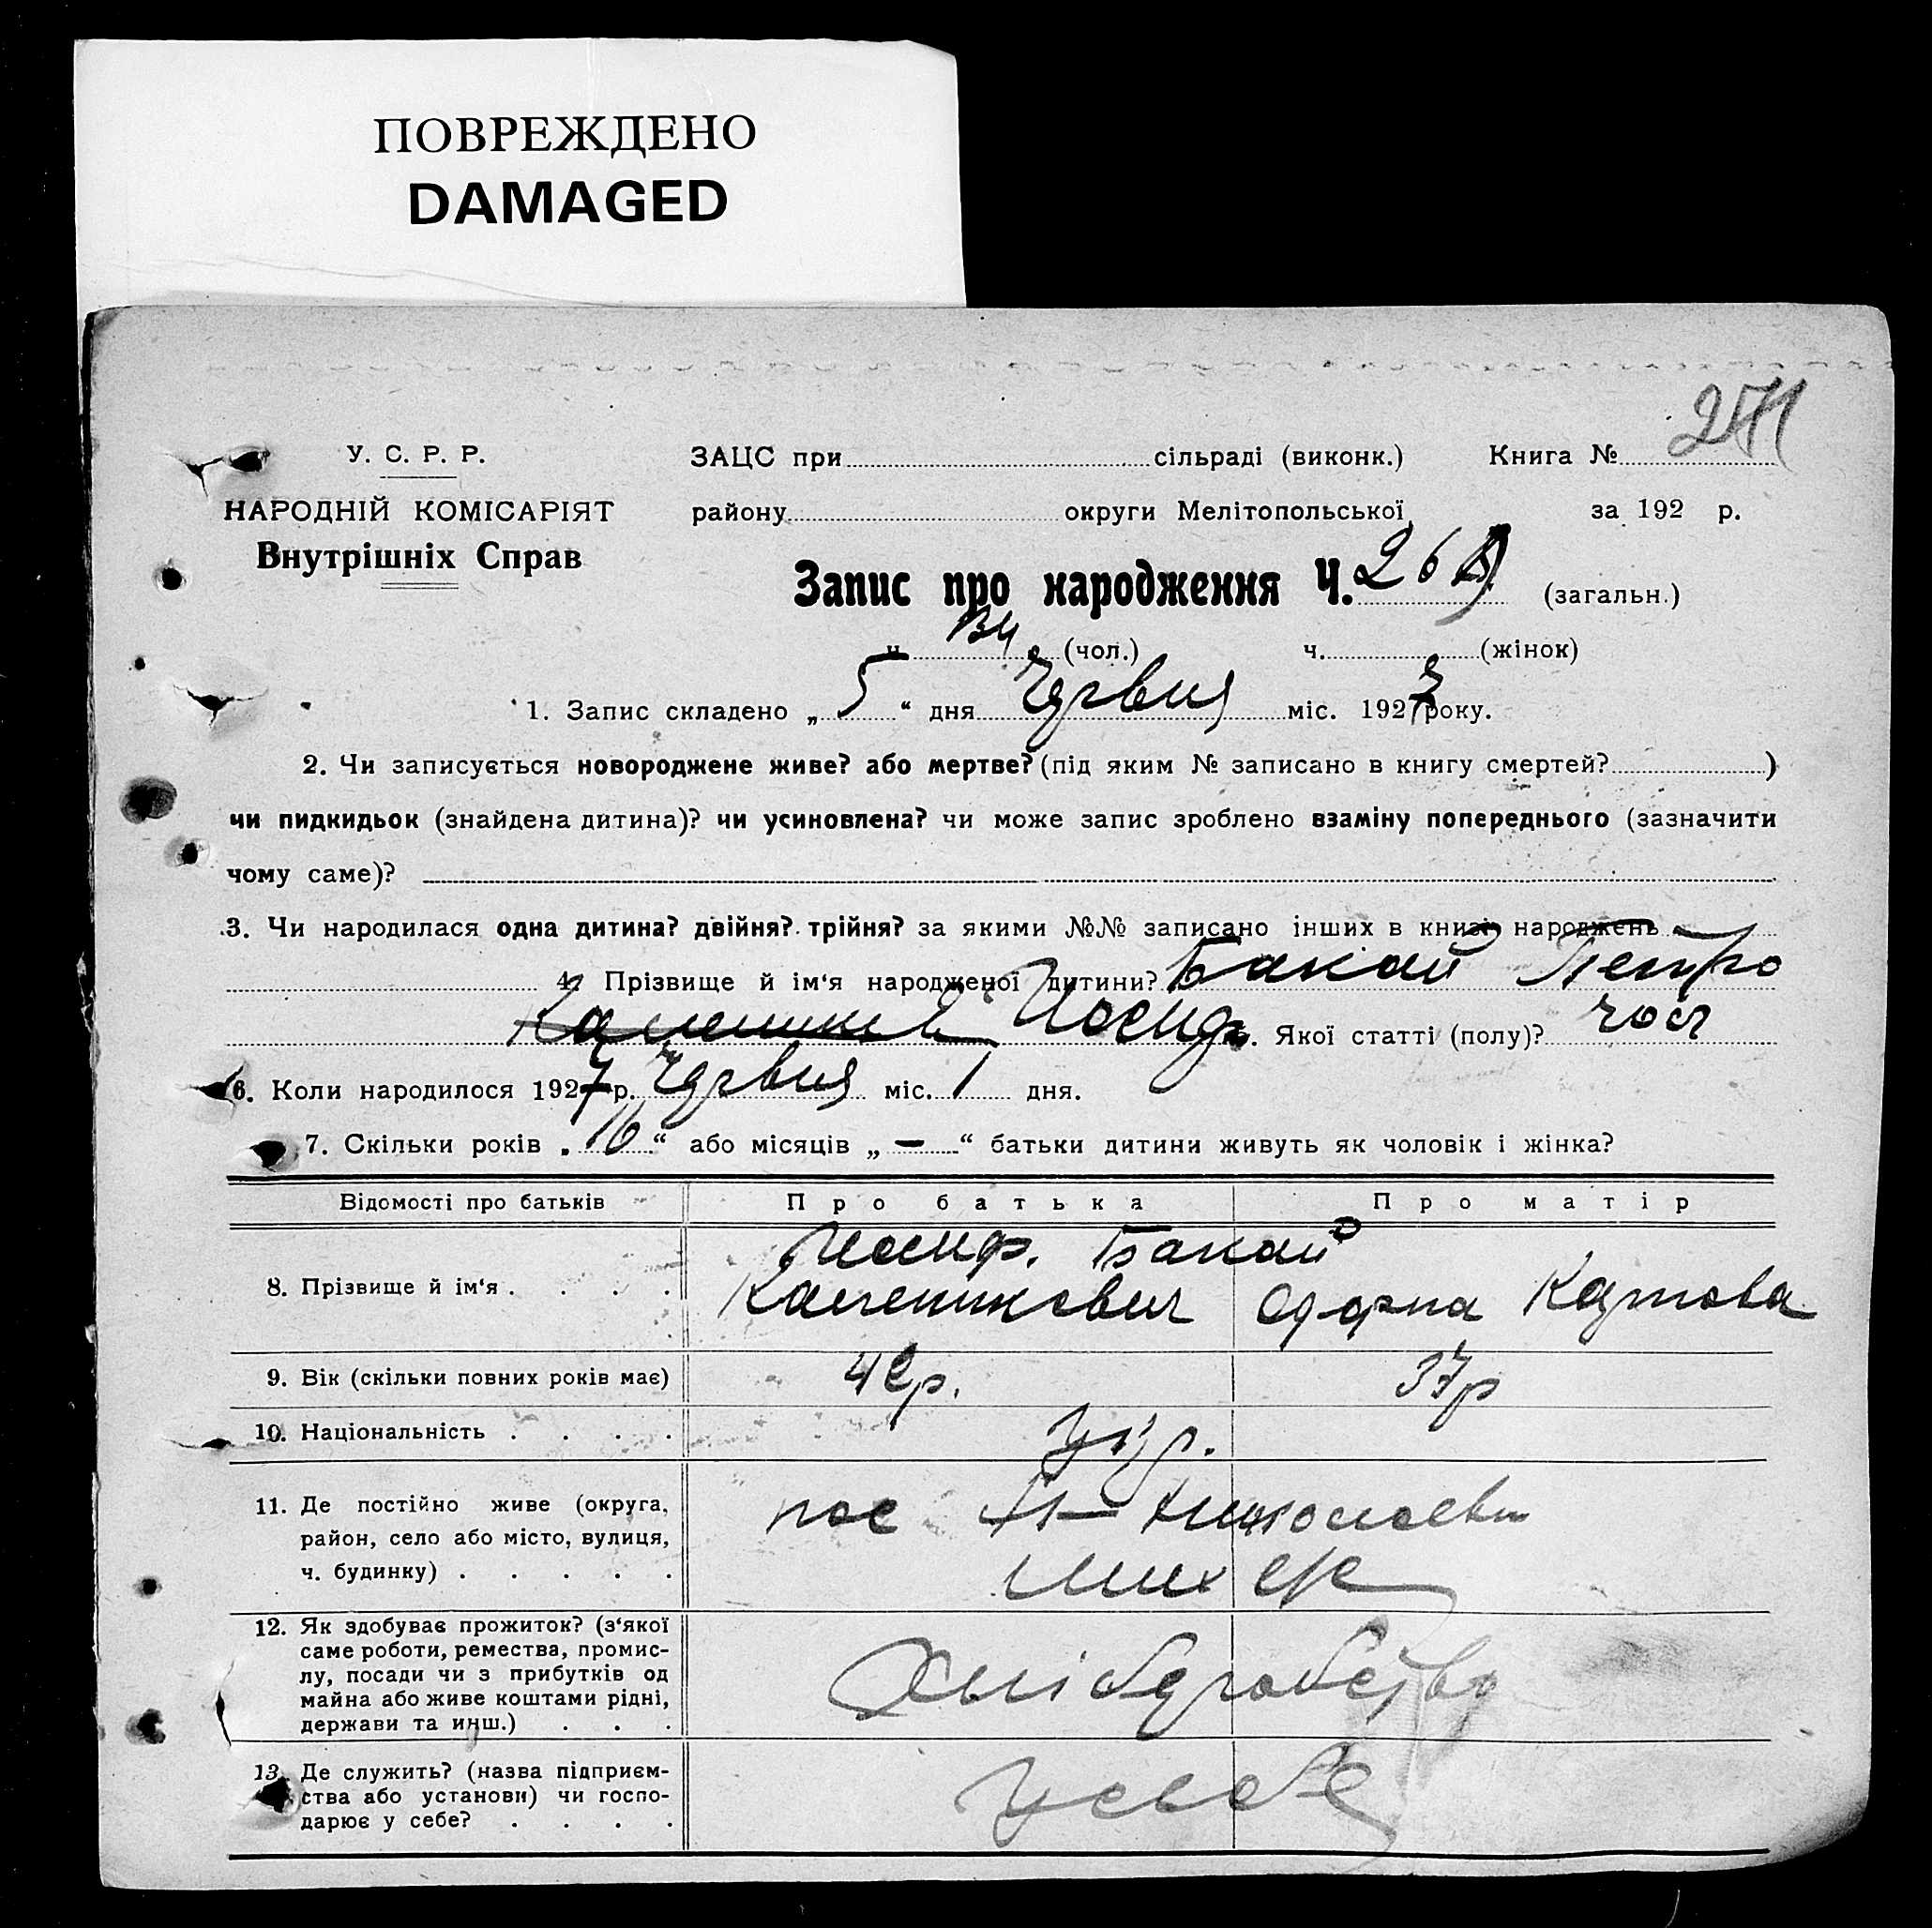 ПОВРЕЖДЕНО
DAMAGED
У. С. Р. Р.
ЗАЦС при сільраді (виконк.) Книга №
НАРОДНІЙ КОМІСАРІЯТ
району округи Мелітопольської за 192 р.
Внутрішніх Справ
Запис про народження Ч. (загальн.)
ч. (чол.) ч. (жінок)
1. Запис складено „ 5 “ дня Червня міс. 1927 року.
2. Чи записується новороджене живе? або мертве? (під яким № записано в книгу смертей? )
чи пидкидьок (знайдена дитина)? чи усиновлена? чи може запис зроблено взаміну попереднього (зазначити
чому саме)?
3. Чи народилася одна дитина? двійня? трійня? за якими №№ записано інших в книзі народжень
4. Прізвище й ім‘я народженої дитини? Бакай Петро
Иосиф. Якої статті (полу)? чол
6. Коли народилося 1927 р. Червня міс. 1 дня.
7. Скільки років „ 16 “ або місяців „ — “ батьки дитини живуть як чоловік і жінка?
Відомості про батьків Про батька Про матір
8. Прізвище й ім‘я . . . . Иосиф. Бакай
Каленикович Одарка
9. Вік (скільки повних років має) 42р. 37р
10. Національність . . . . укр.
11. Де постійно живе (округа,
район, село або місто, вулиця,
ч. будинку) . . . . .
12. Як здобуває прожиток? (з‘якої
саме роботи, ремества, промис-
лу, посади чи з прибутків од
майна або живе коштами рідні,
держави та инш.) . . .
Хліборобство
13. Де служить? (назва підприєм-
ства або установи) чи госпо-
дарює у себе? . . . .
У себе